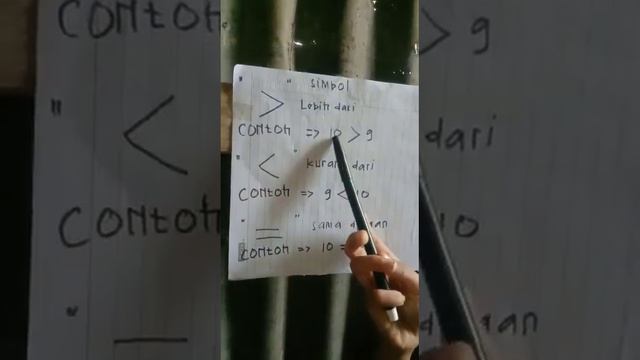 " " simbol
> Lebih dari
CONTOH => 10 > 9
" < " kurang dari
CONTOH => 9 < 10
" = " sama dengan
CONTOH => 10 =